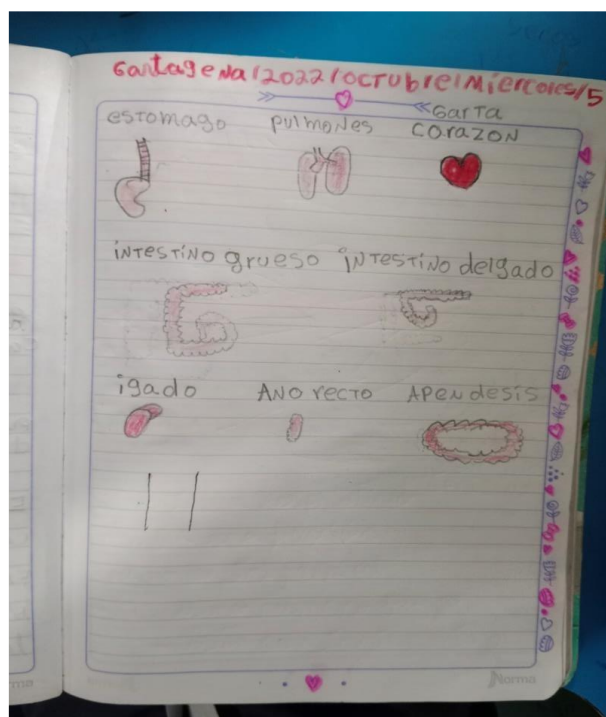 Gartagena/2022/octubre/Miercoles/5
Garta
estomago pulmones corazon
intestino grueso intestino delgado
igado Ano recto Apendesis
Norma